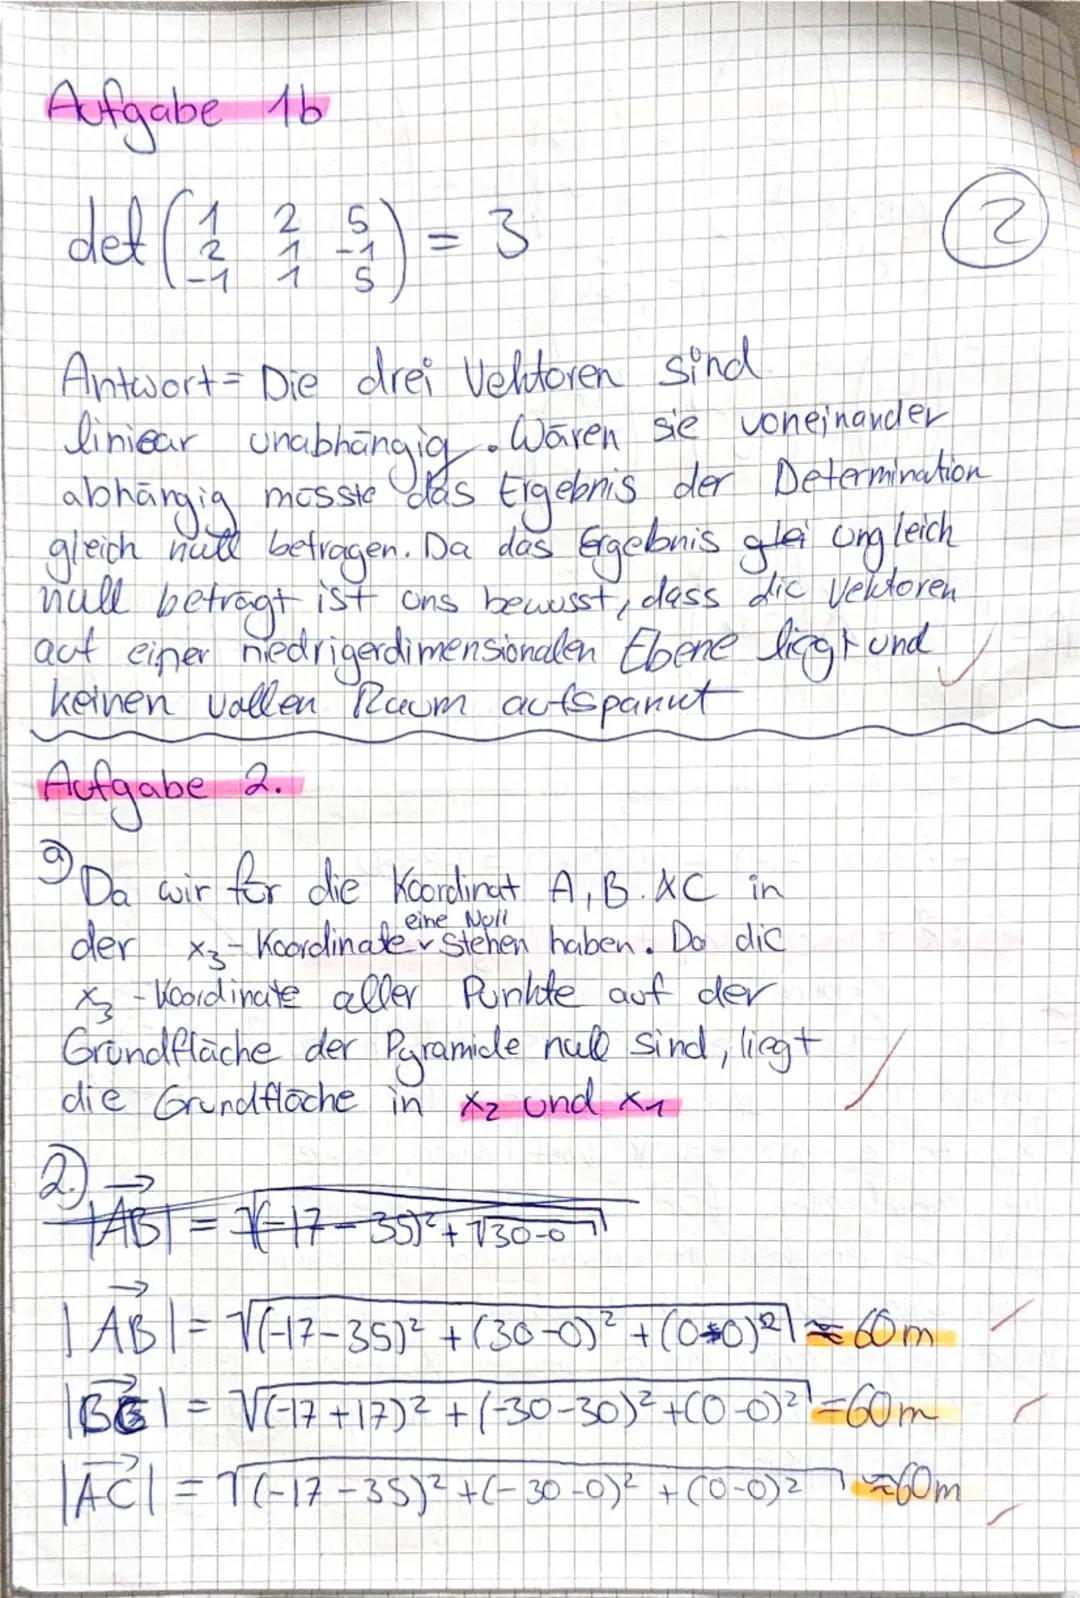 Aufgabe 1b
det ( 1 2 5 ) = 3
2 1 -1
-1 1 5
2
Antwort= Die drei Vektoren sind
liniear unabhängig. Wären sie voneinander
abhängig müsste das Ergebnis der Determination
gleich null betragen. Da das Ergebnis glei ungleich
null beträgt ist uns bewusst, dass die Vektoren
auf einer niedrigerdimensionalen Ebene liegt und
keinen vollen Raum aufspannt
Aufgabe 2.
a) Da wir für die Koordinat A, B. &C in
der x₃-Koordinate eine Null stehen haben. Da die
x₃-Koordinate aller Punkte auf der
Grundfläche der Pyramide null sind, liegt
die Grundfläche in x₂ und x₁
2.)
|AB| = √(-17-35)²+√30-0
|AB| = √(-17-35)² +(30-0)² +(0-0)² ≈ 60m
|BC| = √(-17+17)² +(-30-30)² +(0-0)² =60m
|AC| = √(-17-35)² +(-30-0)² +(0-0)² ≈60m